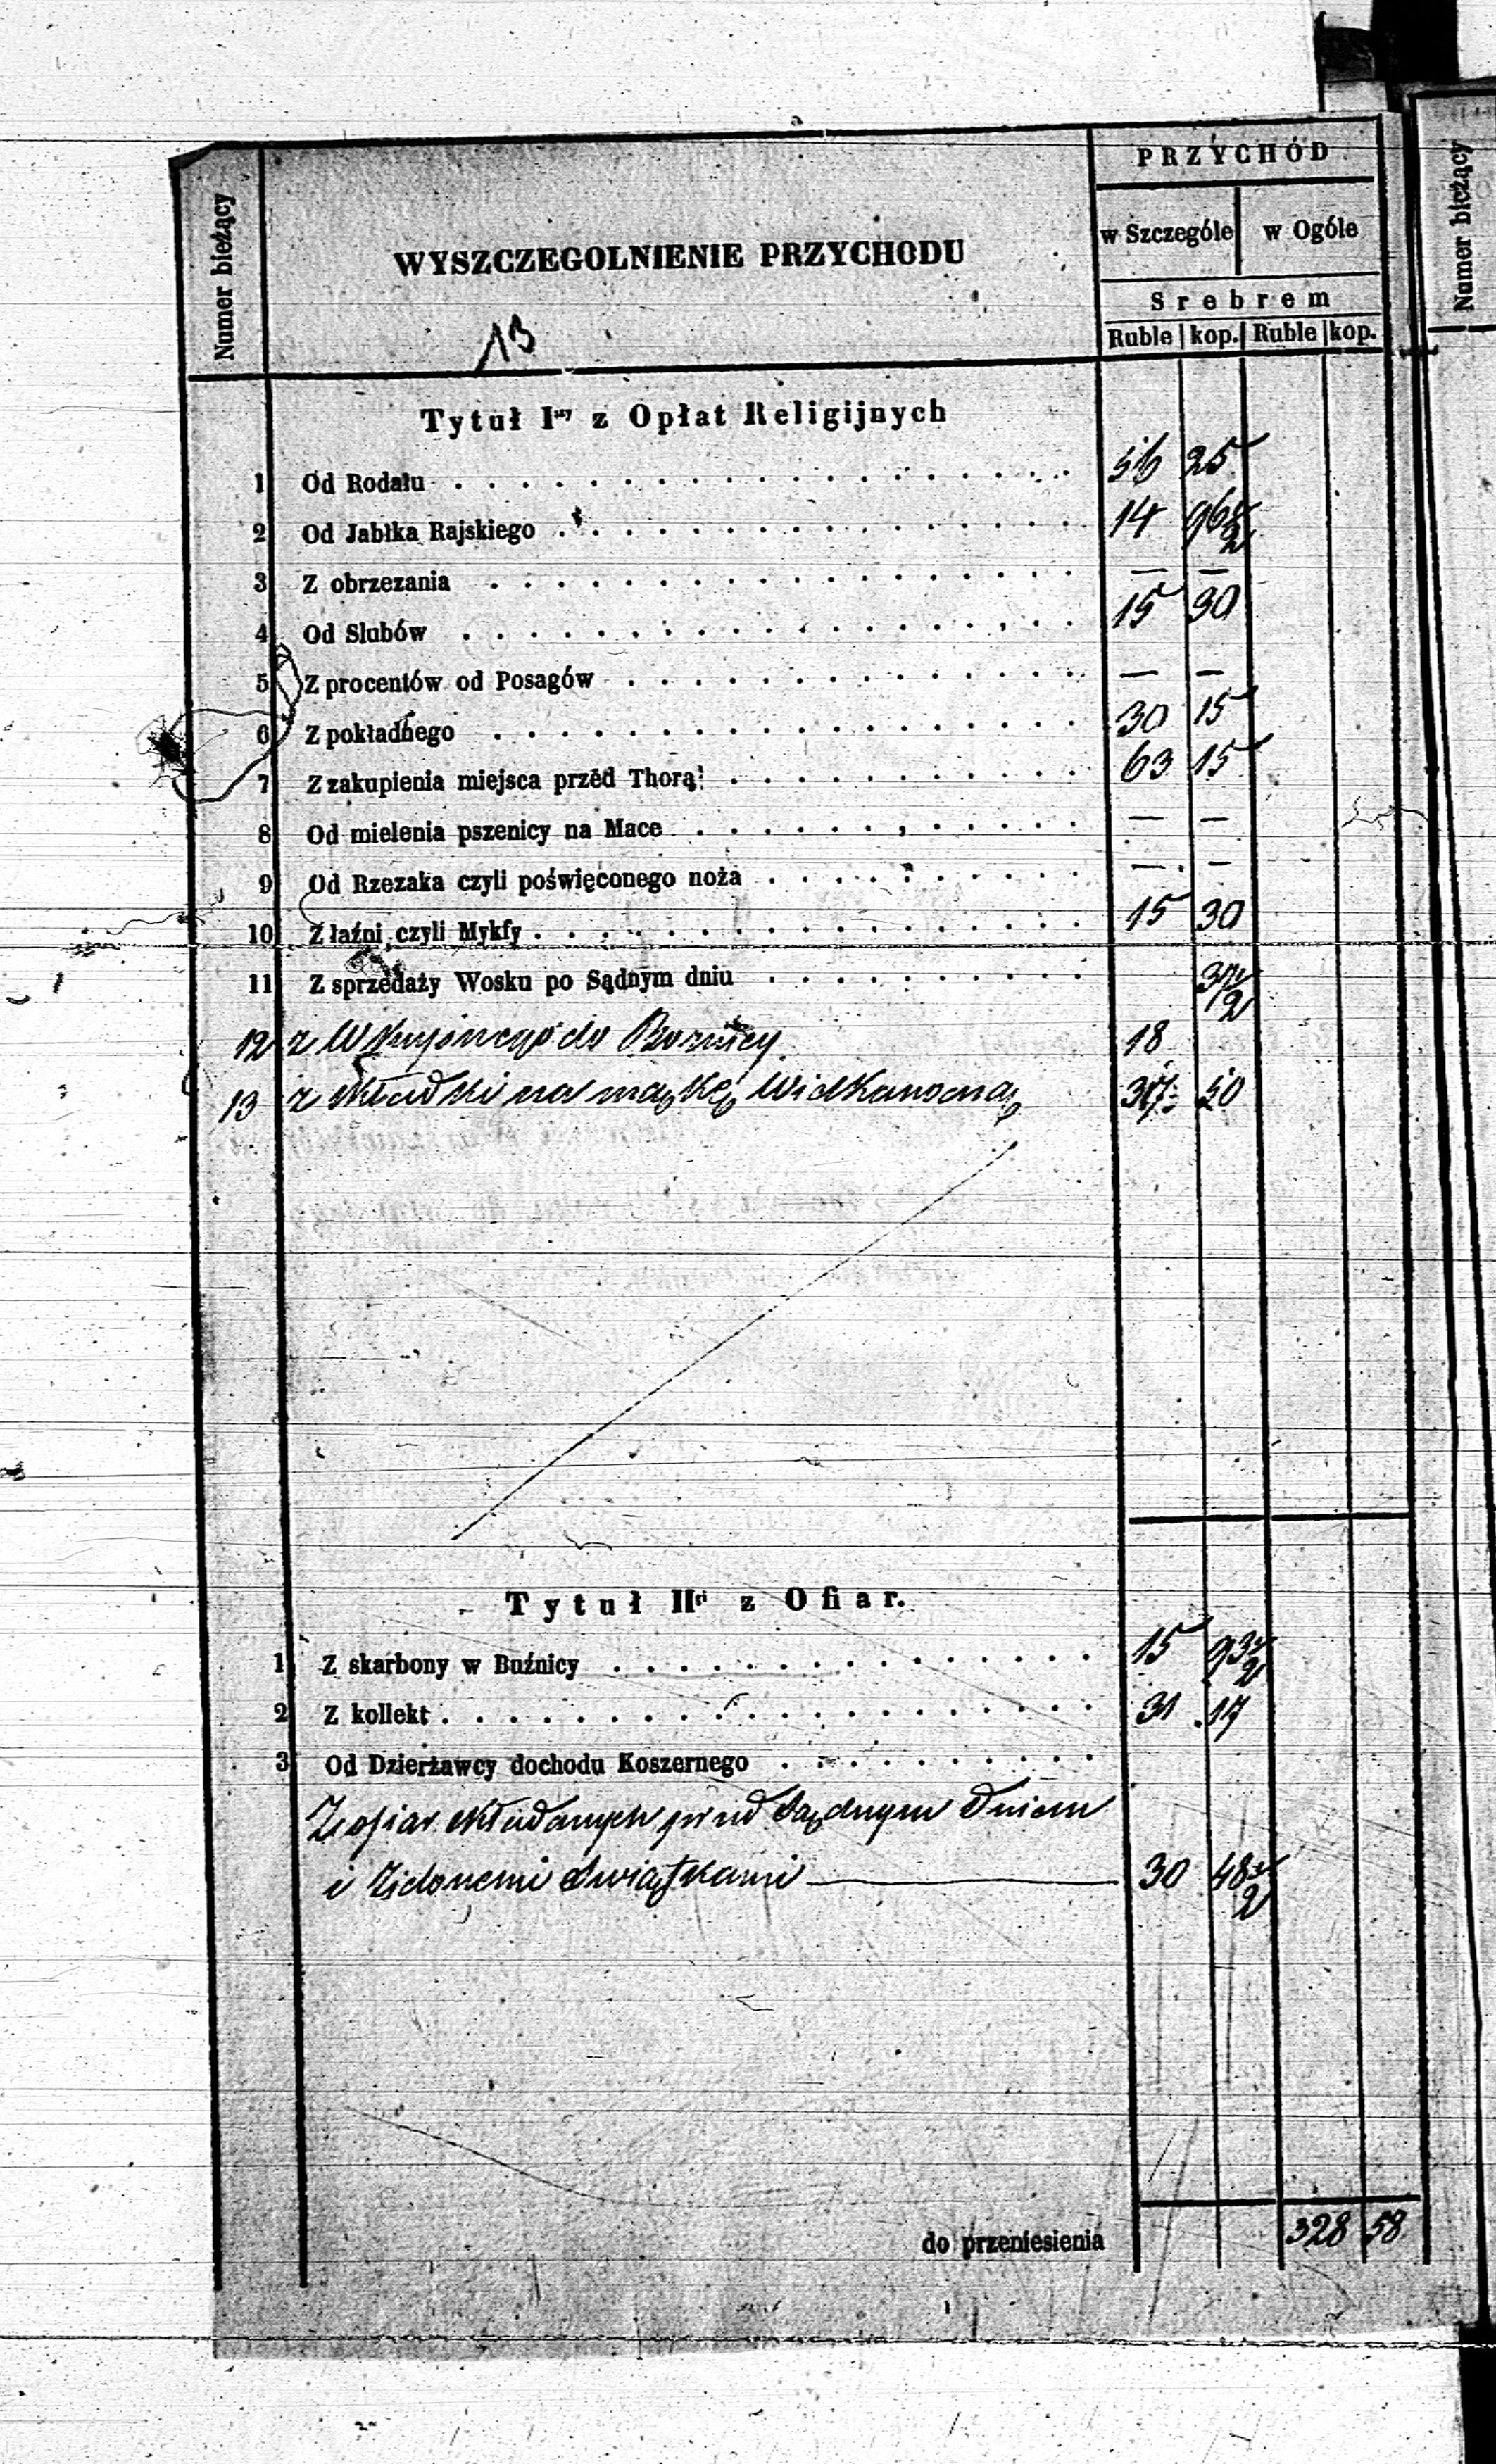 Numer bieżący
WYSZCZEGOLNIENIE PRZYCHODU
13
PRZYCHÓD
w Szczególe w Ogóle
Srebrem
Ruble kop. Ruble kop.
Numer bieżący
Tytuł I z Opłat Religijnych
1 Od Rodału 56 25
2 Od Jabłka Rajskiego 14 96½
3 Z obrzezania — —
4 Od Slubów 15 30
5 Z procentów od Posagów — —
6 Z pokładnego 30 15
7 Z zakupienia miejsca przed Thorą 63 15
8 Od mielenia pszenicy na Mace — —
9 Od Rzezaka czyli poświęconego noża — —
10 Z łaźni czyli Mykfy 15 30
11 Z sprzedaży Wosku po Sądnym dniu 37½
12 z Wkupnego do Boznicy 18
13 z składki na mąkę Wielkanocną 37 50
Tytuł II z Ofiar.
1 Z skarbony w Buźnicy 15 93½
2 Z kollekt 31 17
3 Od Dzierżawcy dochodu Koszernego
Z ofiar składanych przed Sądnym Dniem
i Zielonemi Swiątkami 30 48½
do przeniesienia 328 58